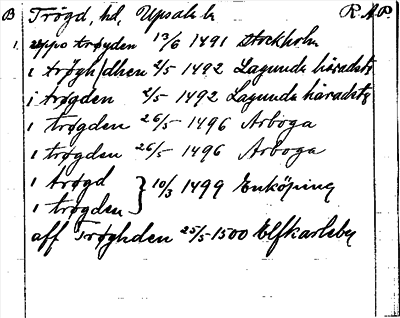 B Trøgd, hd, Upsala l. R.A.P.
1. uppo trøgden 13/6 1491 Stockholm
i trøghdhen 2/5 1492 Lagunda häradstg
i trøgden 2/5 1492 Lagunda häradstg
i trøgden 26/5 1496 Arboga
i trøgden 26/5 1496 Arboga
i trøgd } 10/3 1499 Enköping
i trøgden
aff Trøghden 25/5 1500 Elfkarleby